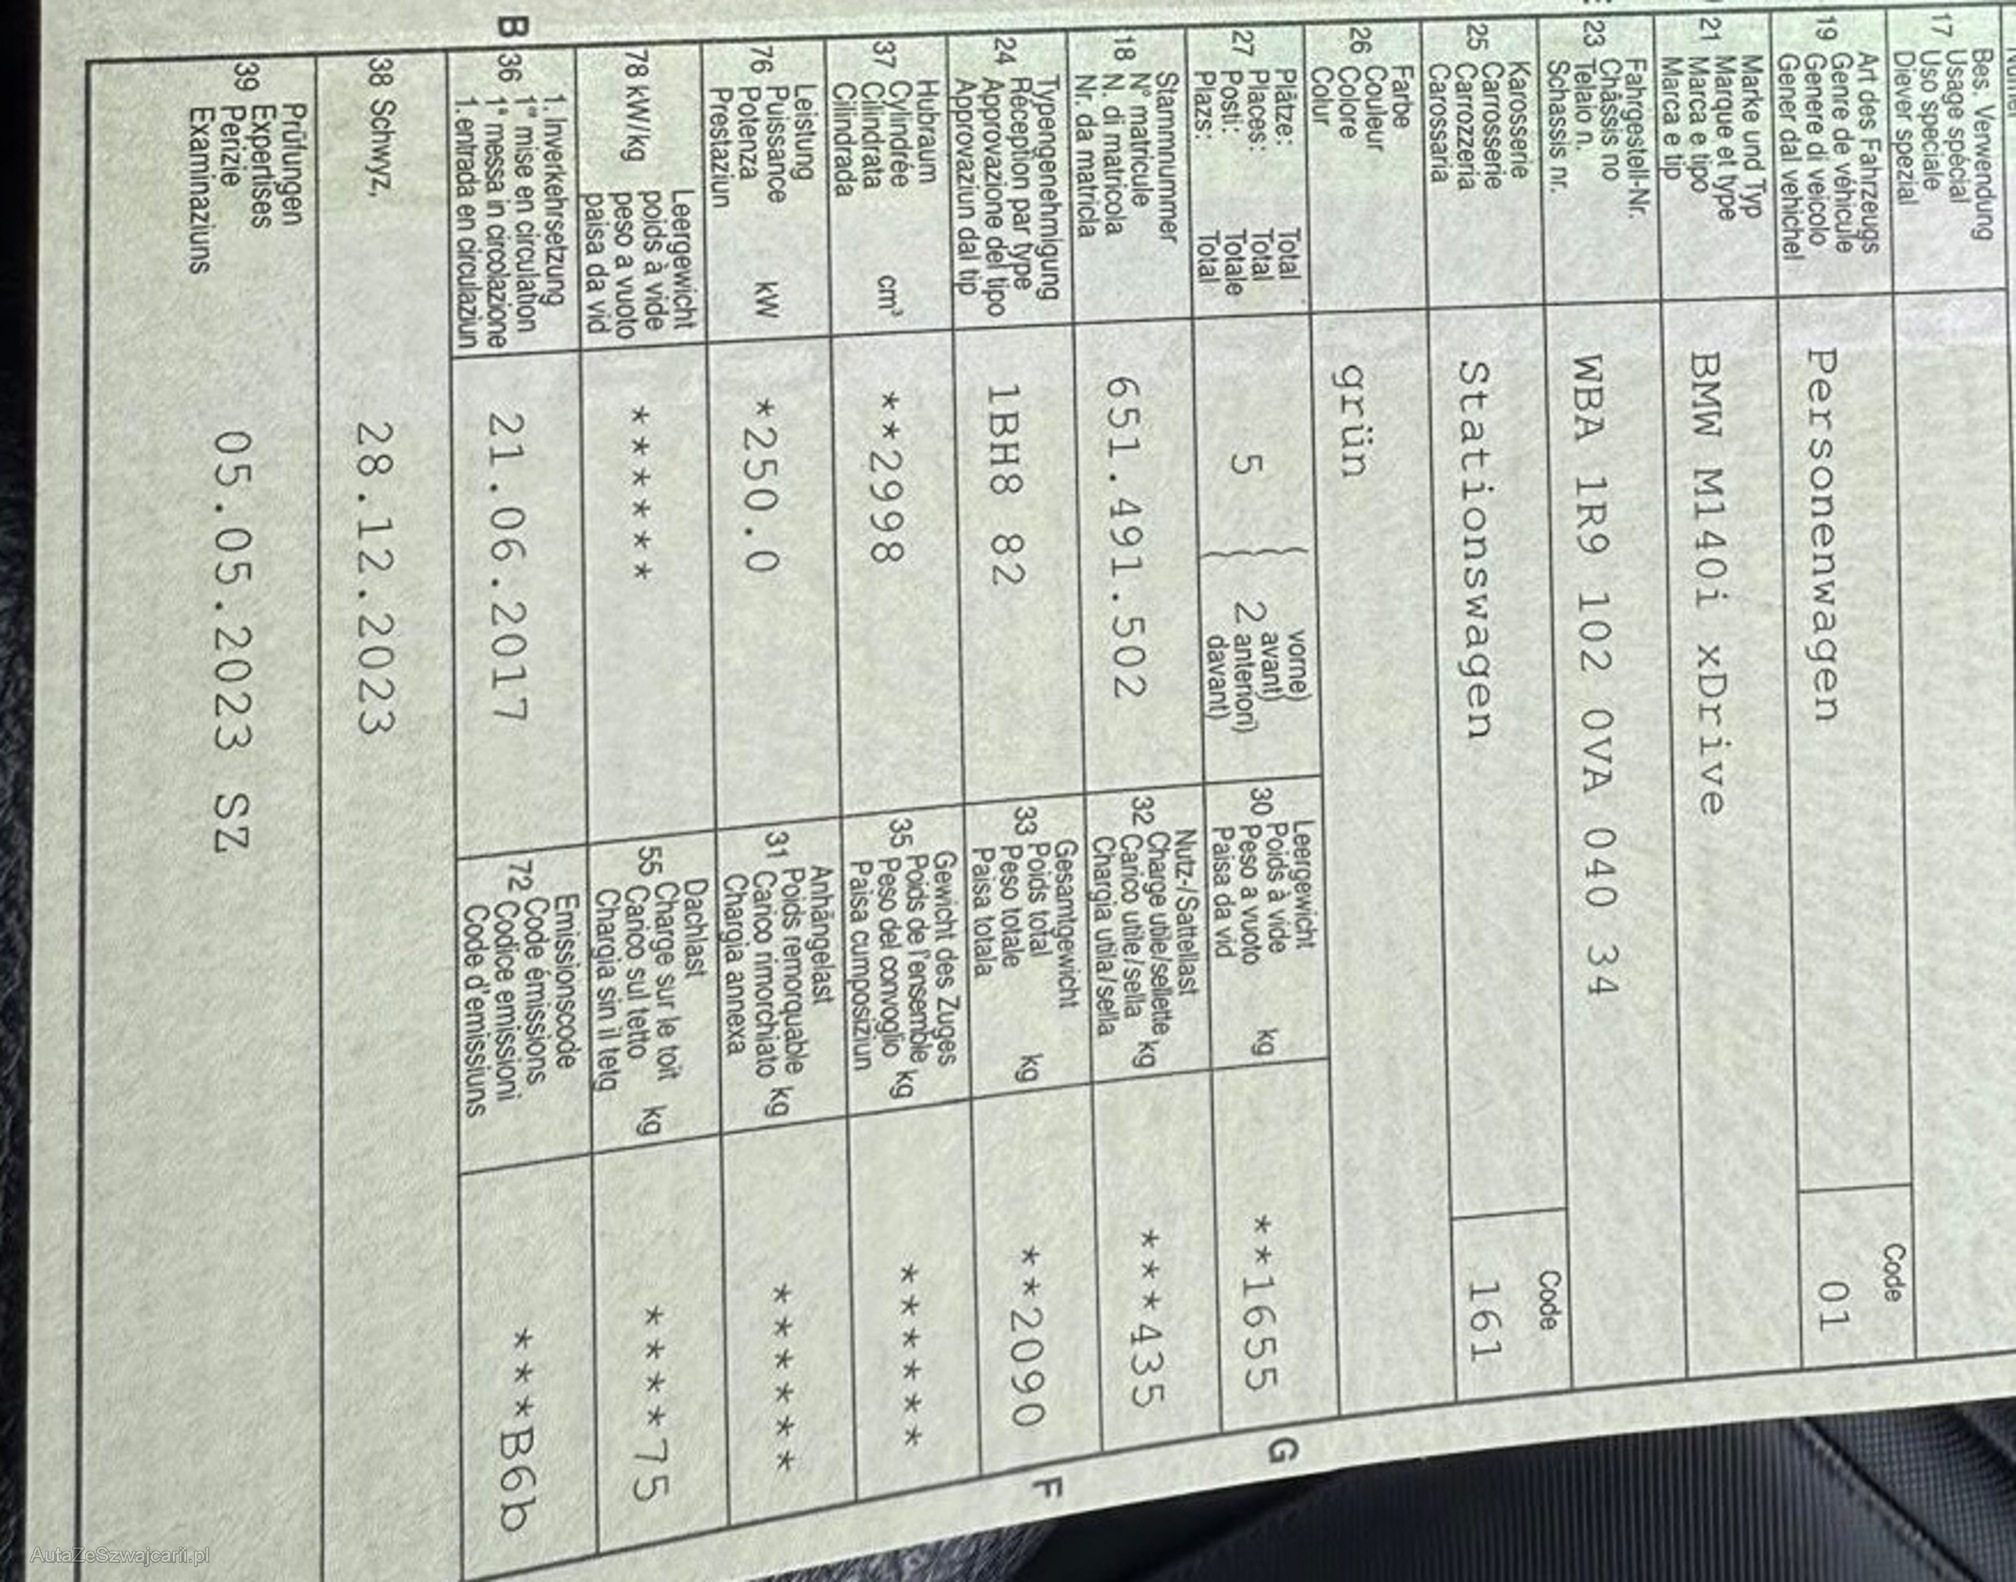 Bes. Verwendung
17 Usage spécial
Uso speciale
Diever spezial
Art des Fahrzeugs
19 Genre de véhicule
Genere di veicolo
Gener dal vehichel
Personenwagen
Code
01
Marke und Typ
21 Marque et type
Marca e tipo
Marca e tip
BMW M140i xDrive
Fahrgestell-Nr.
23 Châssis no
Telaio n.
Schassis nr.
WBA 1R9 102 0VA 040 34
Karosserie
25 Carrosserie
Carrozzeria
Carossaria
Stationswagen
Code
161
Farbe
26 Couleur
Colore
Colur
grün
Plätze: Total
27 Places: Total
Posti: Totale
Plazs: Total
5
vorne)
avant)
2 anteriori)
davant)
Leergewicht
30 Poids à vide
Peso a vuoto kg
Paisa da vid
**1655
G
Stammnummer
18 N° matricule
N. di matricola
Nr. da matricla
651.491.502
Nutz-/Sattellast
32 Charge utile/sellette kg
Carico utile/sella
Chargia utila/sella
***435
Typengenehmigung
24 Réception par type
Approvazione del tipo
Approvaziun dal tip
1BH8 82
Gesamtgewicht
33 Poids total kg
Peso totale
Paisa totala
**2090
F
Hubraum
37 Cylindrée cm³
Cilindrata
Cilindrada
**2998
Gewicht des Zuges
35 Poids de l'ensemble kg
Peso del convoglio
Paisa cumposiziun
******
Leistung
76 Puissance kW
Potenza
Prestaziun
*250.0
Anhängelast
31 Poids remorquable kg
Carico rimorchiato
Chargia annexa
******
Leergewicht
78 kW/kg poids à vide
peso a vuoto
paisa da vid
******
Dachlast
55 Charge sur le toit kg
Carico sul tetto
Chargia sin il tetg
****75
B
1. Inverkehrsetzung
36 1re mise en circulation
1a messa in circolazione
1. entrada en circulaziun
21.06.2017
Emissionscode
72 Code émissions
Codice emissioni
Code d'emissiuns
***B6b
38 Schwyz,
28.12.2023
Prüfungen
39 Expertises
Perizie
Examinaziuns
05.05.2023 SZ
AutaZeSzwajcarii.pl